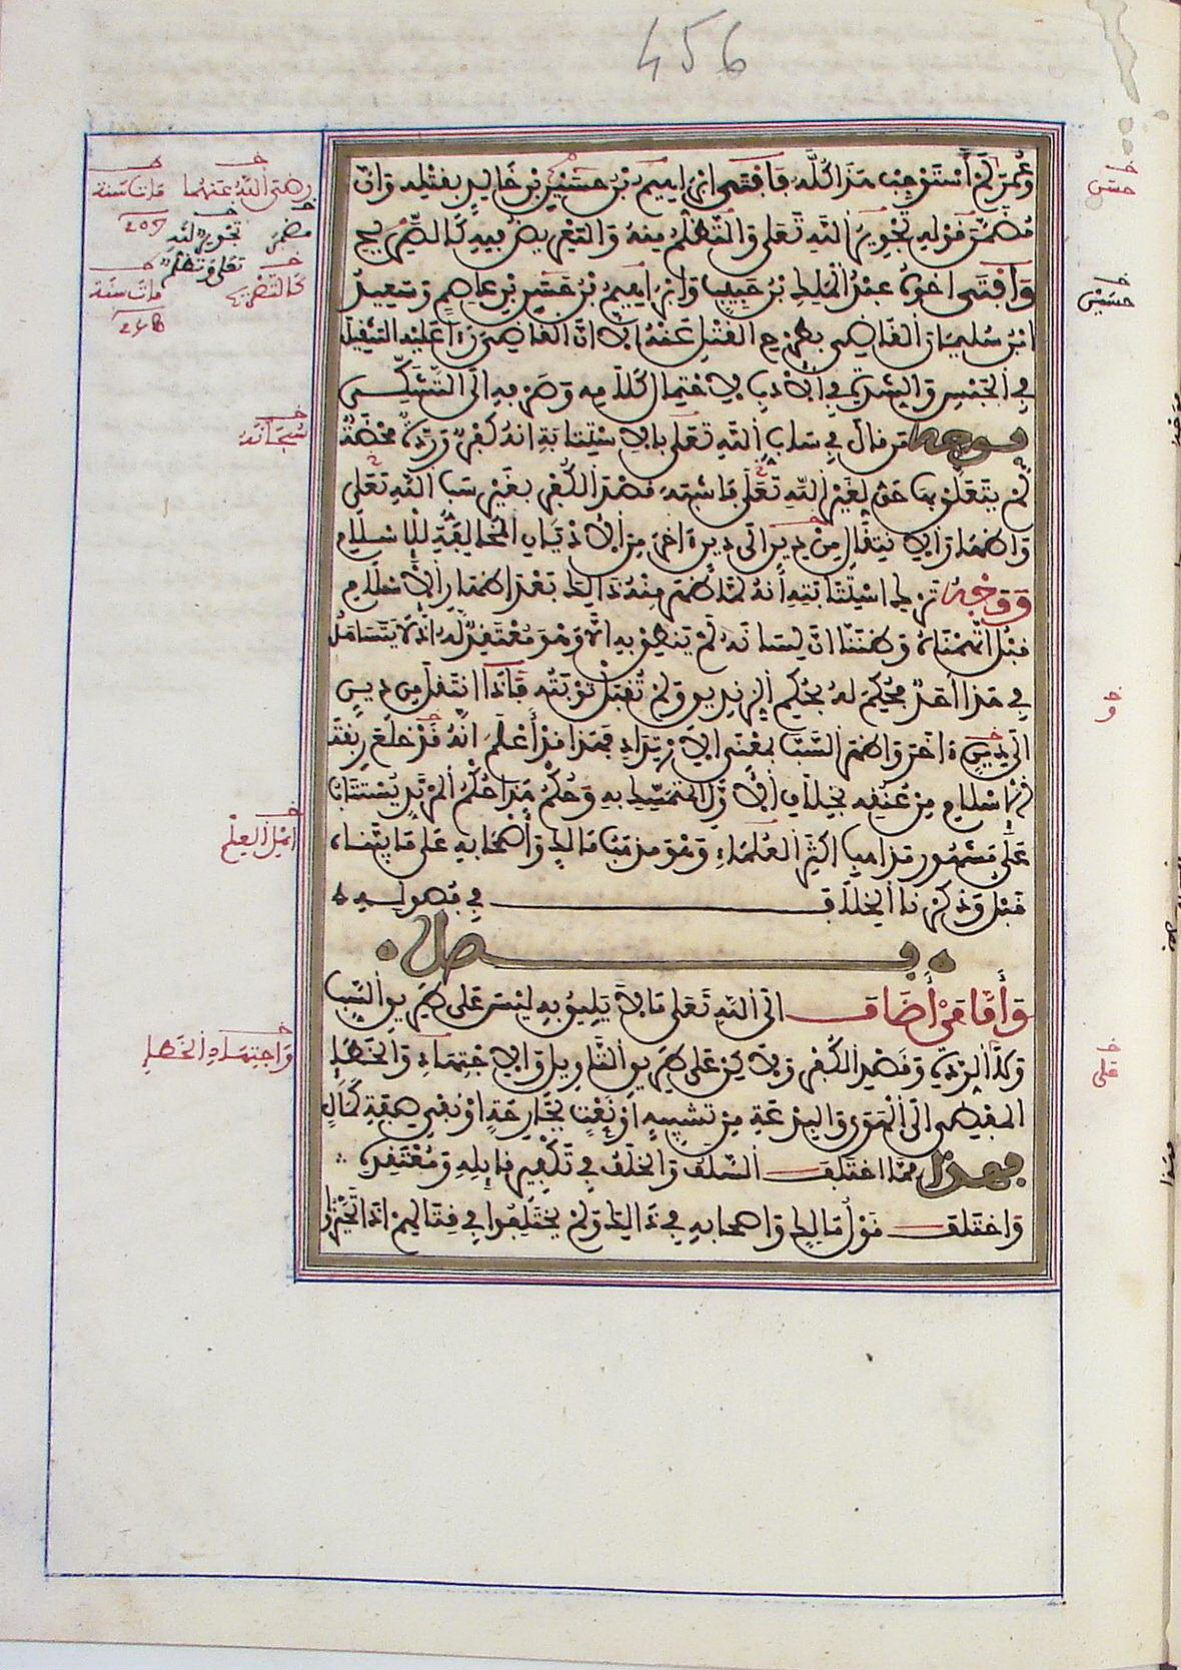 456
وَعُمَرَ لَمْ أَسْتَوْجِبْ هَذَا كُلَّهُ فَأَفْتَى إبراهيم بْنُ حسين بْنِ خَالِدٍ بقتله وَأنّ
مُضَمَّنَ قَوْلِهِ تَجْوِيرُ اللَّهِ تَعَلَى وَالتَّظَلُّمُ مِنْهُ وَالتَّعْرِيضُ فِيهِ كَالتَّصْرِيحِ
وَأَفْتَى أَخُوهُ عبْدُ الْمَلِكِ بْنُ حَبِيبٍ وَإبراهيمُ بْنُ حسين بْنِ عَاصِمٍ وَسَعِيدُ
ابْنُ سُلَيْمَانَ القَاضِي بِطَرْحِ القَتْلِ عَنْهُ إلا أنّ القَاضِيَ رَءَا عَلَيْهِ التَّثْقِيلَ
فِي الحَبْسِ وَالشِّدَّةَ فِي الأَدَبِ لاحْتِمَالِ كَلَامِهِ وَصَرْفِهِ إلَى التَّشَكِّي
فوجه من قالَ فِي سَابِّ اللَّهِ تَعَلَى بالاسْتِتَابَةِ أنهُ كُفْرٌ وَرِدَّةٌ مَحْضَةٌ
لَمْ يَتَعَلَّقْ بِهَا حَقٌّ لِغَيْرِ اللَّهِ تَعَلَى فَأَشْبَهَ قَصْدَ الْكُفْرِ بِغَيْرِ سَبِّ اللَّهِ تَعَلَى
وَإظْهَارَ الانْتِقَالِ مِنْ دِينٍ إلَى دِينٍ ءَاخَرَ مِنَ الأَدْيَانِ الْمُخَالِفَةِ لِلْإِسْلَامِ
وَوَجْهُ تَرْكِ اسْتِتَابَتِهِ أَنهُ لَمَّا ظَهَرَ مِنْهُ ذَالِكَ بَعْدَ إظْهَارِ الإِسْلَامِ
قَبْلُ اتَّهَمْنَاهُ وَظَنَنَّا أَنَّ لِسَانَهُ لَمْ يَنْطِقْ بِهِ إلَّا وَهْوَ مُعْتَقِدٌ لَهُ إذْ لَا يَتَسَاهَلُ
فِي هَذَا أَحَدٌ فَحُكِمَ لَهُ بِحُكْمِ الزِّنْدِيقِ وَلَمْ تُقْبَلْ تَوْبَتُهُ فَإذَا انْتَقَلَ مِن دِينٍ
إلَى دِينٍ ءَاخَرَ وَأظْهَرَ السَّبَّ بِمَعْنَى الارْتِدَادِ فَهَذَا قَدْ أَعْلَمَ أنّهُ قَدْ خَلَعَ رِبْقَةَ
الإسْلَامِ مِنْ عُنُقِهِ بِخِلَافِ الأَوَّلِ الْمُتَمَسِّكِ بِهِ وَحُكْمُ هَذَا حُكْمُ الْمُرْتَدِّ يُسْتَتَابُ
عَلَى مَشْهُورِ مَذَاهِبِ أكْثَرِ العُلَمَاءِ وَهْوَ مَذْهَبُ مَالِكٍ وَأَصْحَابِهِ عَلَى مَا بَيَّنَّاهُ
قَبْلُ وَذَكَرْنَا الْخِلَافَ فِي فصوله
فصل
وَأَمَّا مَنْ أَضَافَ إلَى اللَّهِ تَعَلَى مَا لَا يَلِيقُ بِهِ لَيْسَ عَلَى طَرِيقِ السَّبِّ
وَلَا الرِّدَّةِ وَقَصْدِ الكُفْرِ وَلَكِنْ عَلَى طَرِيقِ التَّأوِيلِ وَالاجْتِهَادِ وَالْخَطَإِ
المُفْضِي إلَى الْهَوَى وَالبِدْعَةِ مِنْ تَشْبِيهٍ أوْ نَعْتٍ بِجَارِحَةٍ أوْ نَفْيِ صِفَةِ كَمَالٍ
فهذا مِمَّا اخْتَلَفَ السَّلَفُ وَالْخَلَفُ فِي تَكْفِيرِ قَائِلِهِ وَمُعْتَقِدِهِ
وَاخْتَلَفَ قَوْلُ مَالِكٍ وَأصْحَابِهِ فِي ذَالِكَ وَلَمْ يَخْتَلِفُوا فِي قِتَالِهِمْ إذَا تَحَيَّزُوا
رضي الله عنهما
مات سنة
205
تجوير لله
تعلى وتظلم
مات سنة
238
سُبْحَانَهُ
أهْلِ العِلْمِ
وَاجتِهَادِ الخَطَإِ
حسن
حسين
و
على